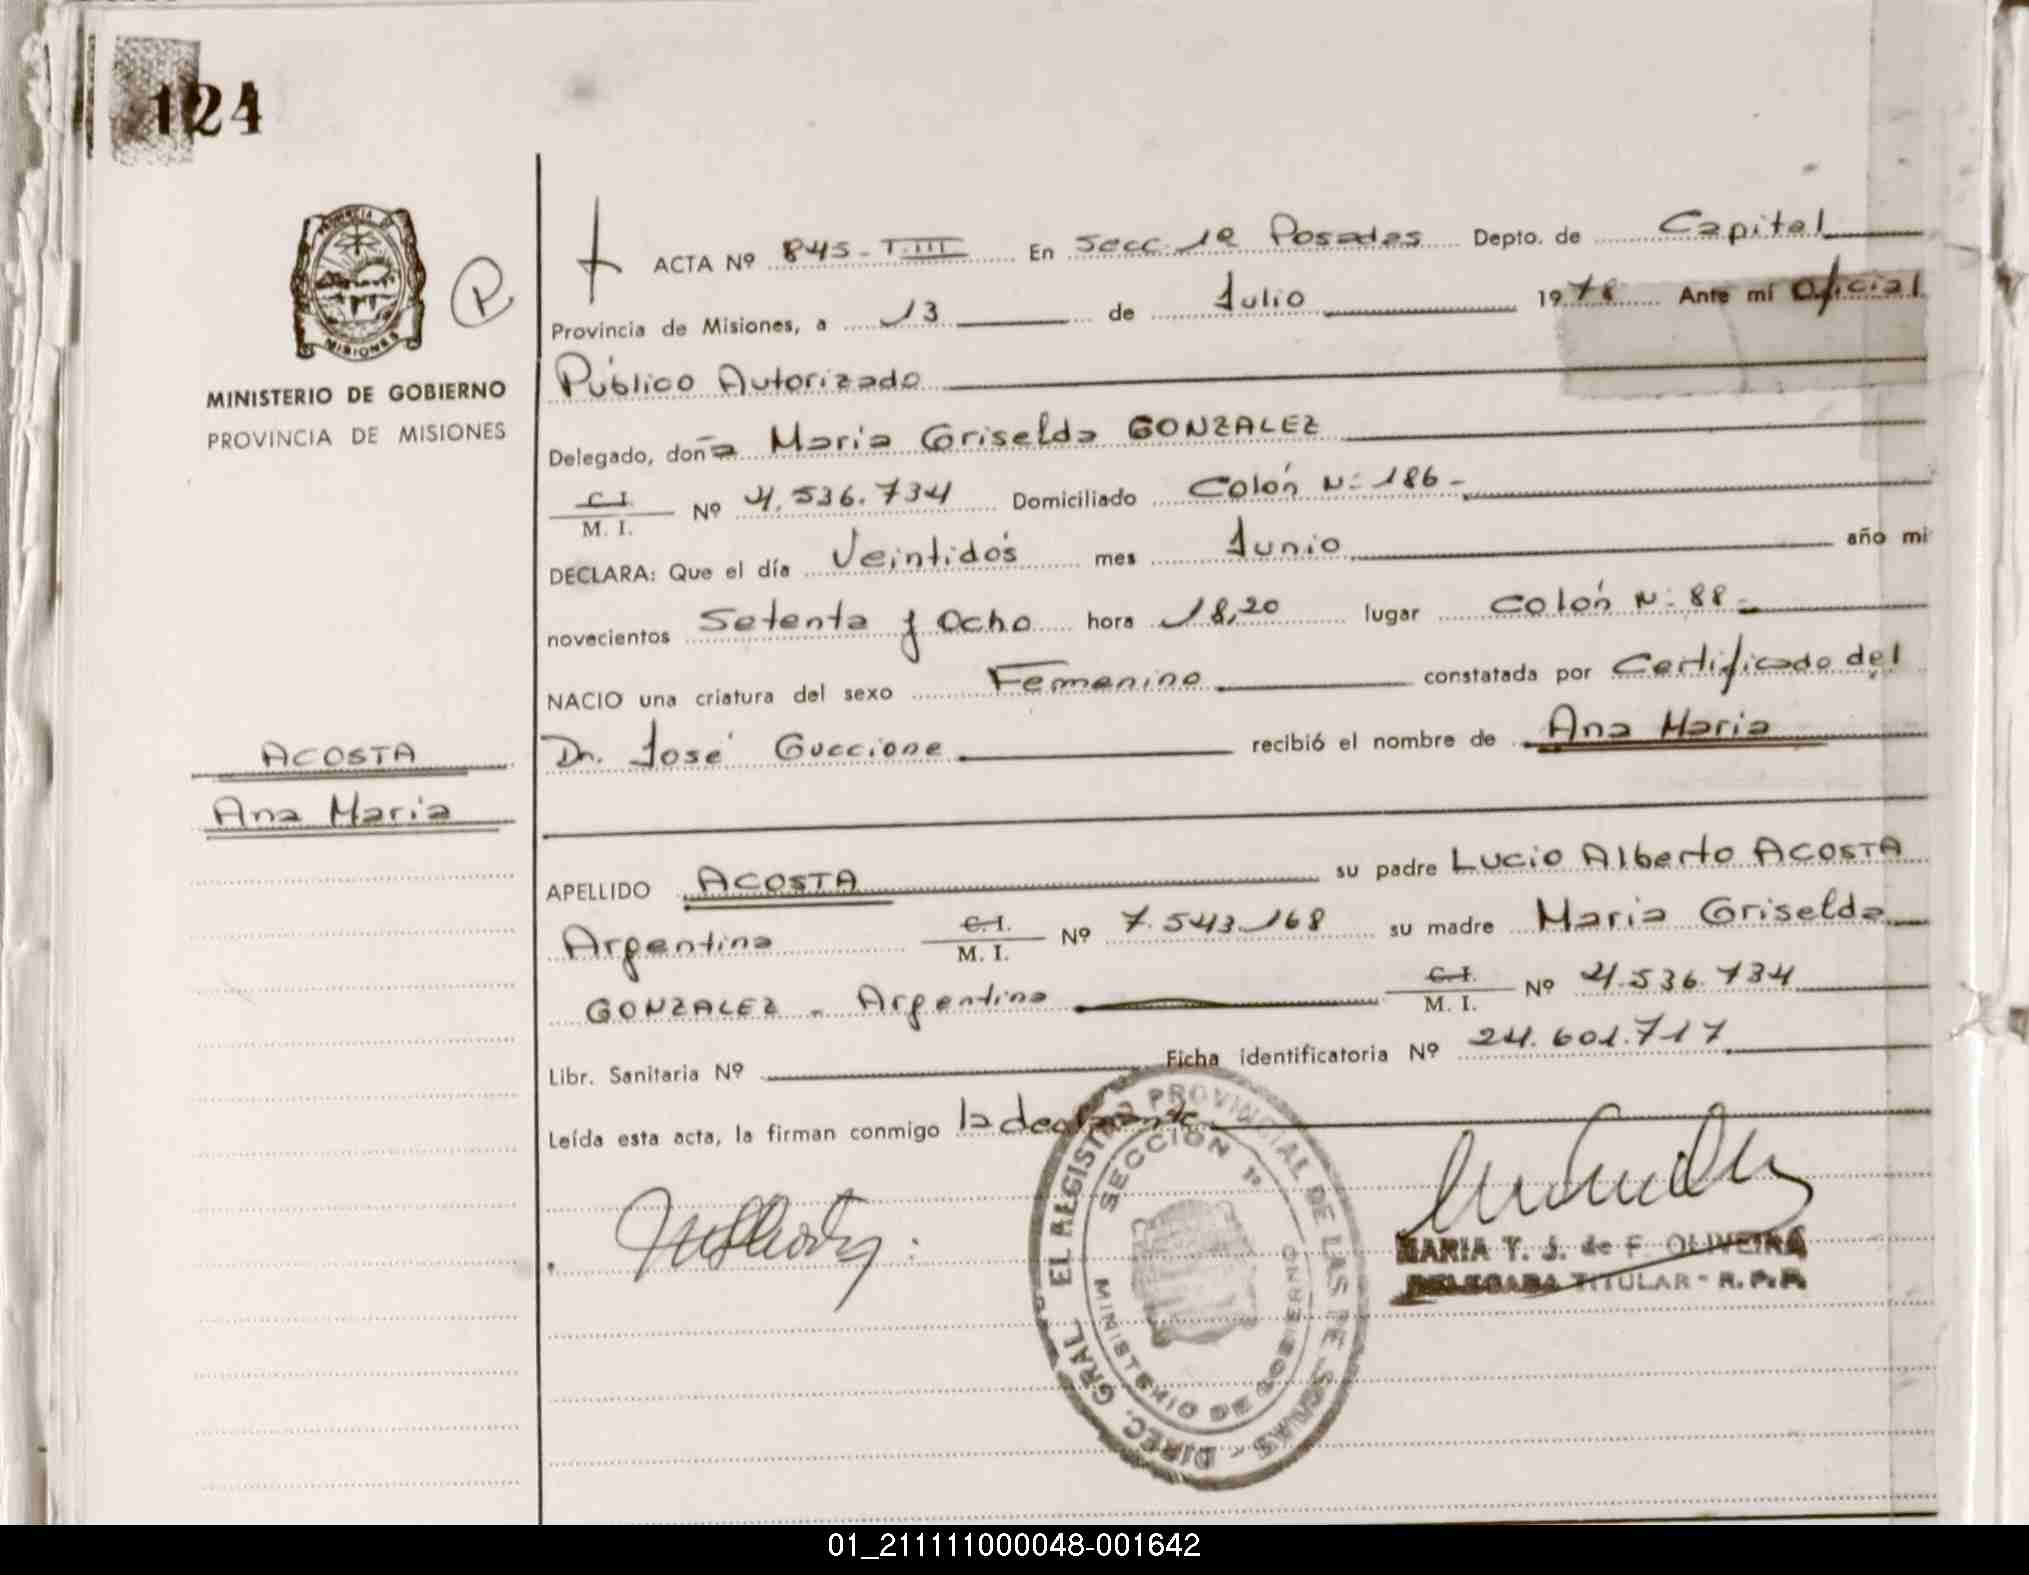 124
PROVINCIA DE
MISIONES
R
MINISTERIO DE GOBIERNO
PROVINCIA DE MISIONES
ACOSTA
Ana Maria
ACTA Nº 845-T.III En Secc. 1ª Posadas Depto. de Capital
Provincia de Misiones, a 13 de Julio 1978 Ante mí Oficial
Público Autorizado
Delegado, doña Maria Griselda GONZALEZ
C. I.
M. I. Nº 4.536.734 Domiciliado Colón Nº 186-
DECLARA: Que el día Veintidós mes Junio año mi
novecientos Setenta y Ocho hora 18,20 lugar Colón Nº 88-
NACIO una criatura del sexo Femenino constatada por Certificado del
Dr. José Guccione recibió el nombre de Ana Maria
APELLIDO ACOSTA su padre Lucio Alberto ACOSTA
Argentina C. I.
M. I. Nº 7.543.168 su madre Maria Griselda
GONZALEZ - Argentina C. I.
M. I. Nº 4.536.734
Libr. Sanitaria Nº Ficha identificatoria Nº 24.601.717
Leída esta acta, la firman conmigo la declarante
DIREC. GRAL. EL REGISTRO PROVINCIAL DE LAS PERSONAS -
SECCION 1ª
MINISTERIO DE GOBIERNO
MARIA T. J. de F. OLIVEIRA
DELEGADA TITULAR - R. P. P.
01_211111000048-001642